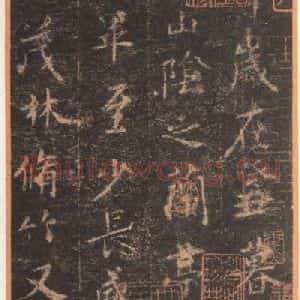 歲在癸丑暮
山陰之蘭亭
畢至少長咸
茂林脩竹又